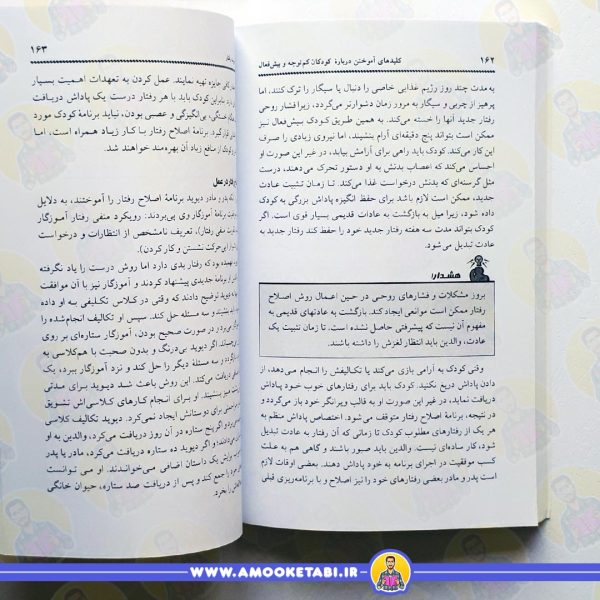 ۱۶۲
کلیدهای آموختن دربارهٔ کودکان کم‌توجه و بیش‌فعال
به مدت چند روز رژیم غذایی خاصی را دنبال یا سیگار را ترک کنند، اما
پرهیز از چربی و سیگار به مرور زمان دشوارتر می‌گردد، زیرا فشار روحی
رفتار جدید آنها را خسته می‌کند. به همین طریق کودک بیش‌فعال نیز
ممکن است بتواند پنج دقیقه‌ای آرام بنشیند، اما نیروی زیادی را صرف
این کار می‌کند. کودک باید راهی برای آرامش بیابد، در غیر این صورت او
احساس می‌کند که اعصاب بدنش به او دستور تحرک می‌دهند، درست
مثل گرسنه‌ای که بدنش درخواست غذا می‌کند. تا زمان تثبیت عادت
جدید، ممکن است لازم باشد برای حفظ انگیزه پاداش بزرگی به کودک
داده شود، زیرا میل به بازگشت به عادات قدیمی بسیار قوی است. اگر
کودک بتواند مدت سه هفته رفتار جدید خود را حفظ کند رفتار جدید به
عادت تبدیل می‌شود.
هشدار!
بروز مشکلات و فشارهای روحی در حین اعمال روش اصلاح
رفتار ممکن است موانعی ایجاد کند. بازگشت به عادتهای قدیمی به
مفهوم آن نیست که پیشرفتی حاصل نشده است. تا زمان تثبیت یک
عادت، والدین باید انتظار لغزش را داشته باشند.
وقتی کودک به آرامی بازی می‌کند یا تکالیفش را انجام می‌دهد، از
دادن پاداش دریغ نکنید. کودک باید برای رفتارهای خوب خود پاداش
دریافت نماید، در غیر این صورت او به قالب ویرانگر خود باز می‌گردد و
در نتیجه، برنامهٔ اصلاح رفتار متوقف می‌شود. اختصاص پاداش منظم به
هر یک از رفتارهای مطلوب کودک تا زمانی که آن رفتار به عادت تبدیل
شود، کار ساده‌ای نیست. والدین باید صبور باشند و گاهی هم به علت
کسب موفقیت در اجرای برنامه به خود پاداش دهند. بعضی اوقات لازم
است پدر و مادر بعضی رفتارهای خود را نیز اصلاح و با برنامه‌ریزی قبلی
۱۶۳
کافی جایزه تهیه نمایند. عمل کردن به تعهدات اهمیت بسیار
دارد، بنابراین کودک باید با هر رفتار درست یک پاداش دریافت
خستگی، بی‌انگیزگی و عصبی بودن، نباید برنامهٔ کودک مورد
برنامهٔ اصلاح رفتار با کار زیاد همراه است، اما
کودک از منافع زیاد آن بهره‌مند خواهند شد.
در عمل
پدر و مادر دیوید برنامهٔ اصلاح رفتار را آموختند، به دلایل
برنامهٔ آموزگار وی پی‌بردند: رویکرد منفی رفتار آموزگار
منفی رفتار)، تعریف نامشخص از انتظارات و درخواست
بی‌حرکت نشستن و کار کردن).
فهمیده بود که رفتار بدی دارد اما روش درست را یاد نگرفته
برنامهٔ جدیدی پیشنهاد کردند و آموزگار نیز با آن موافقت
دیوید توضیح دادند که وقتی در کلاس تکلیفی به او داده
سه مسئله حل کند. سپس او تکالیف انجام‌شده را
در صورت صحیح بودن، آموزگار ستاره‌ای بر روی
دیوید بی‌درنگ و بدون صحبت با هم‌کلاسی به
سه مسئله دیگر را حل کند و نزد آموزگار ببرد، یک
می‌کند. این روش باعث شد دیوید برای مدتی
بنشیند. او برای انجام کارهای کلاسی‌اش تشویق
برای دوستانش ایجاد نمی‌کرد. دیوید تکالیف کلاسی
اگر پنج ستاره در آن روز دریافت می‌کرد، والدین به او
و اگر دیوید ده ستاره دریافت می‌کرد، مادر یا پدر
برایش یک داستان اضافی می‌خواندند. او می‌توانست
را جمع کند و پس از دریافت صد ستاره، حیوان خانگی
بخرد.
WWW.AMOOKETABI.IR